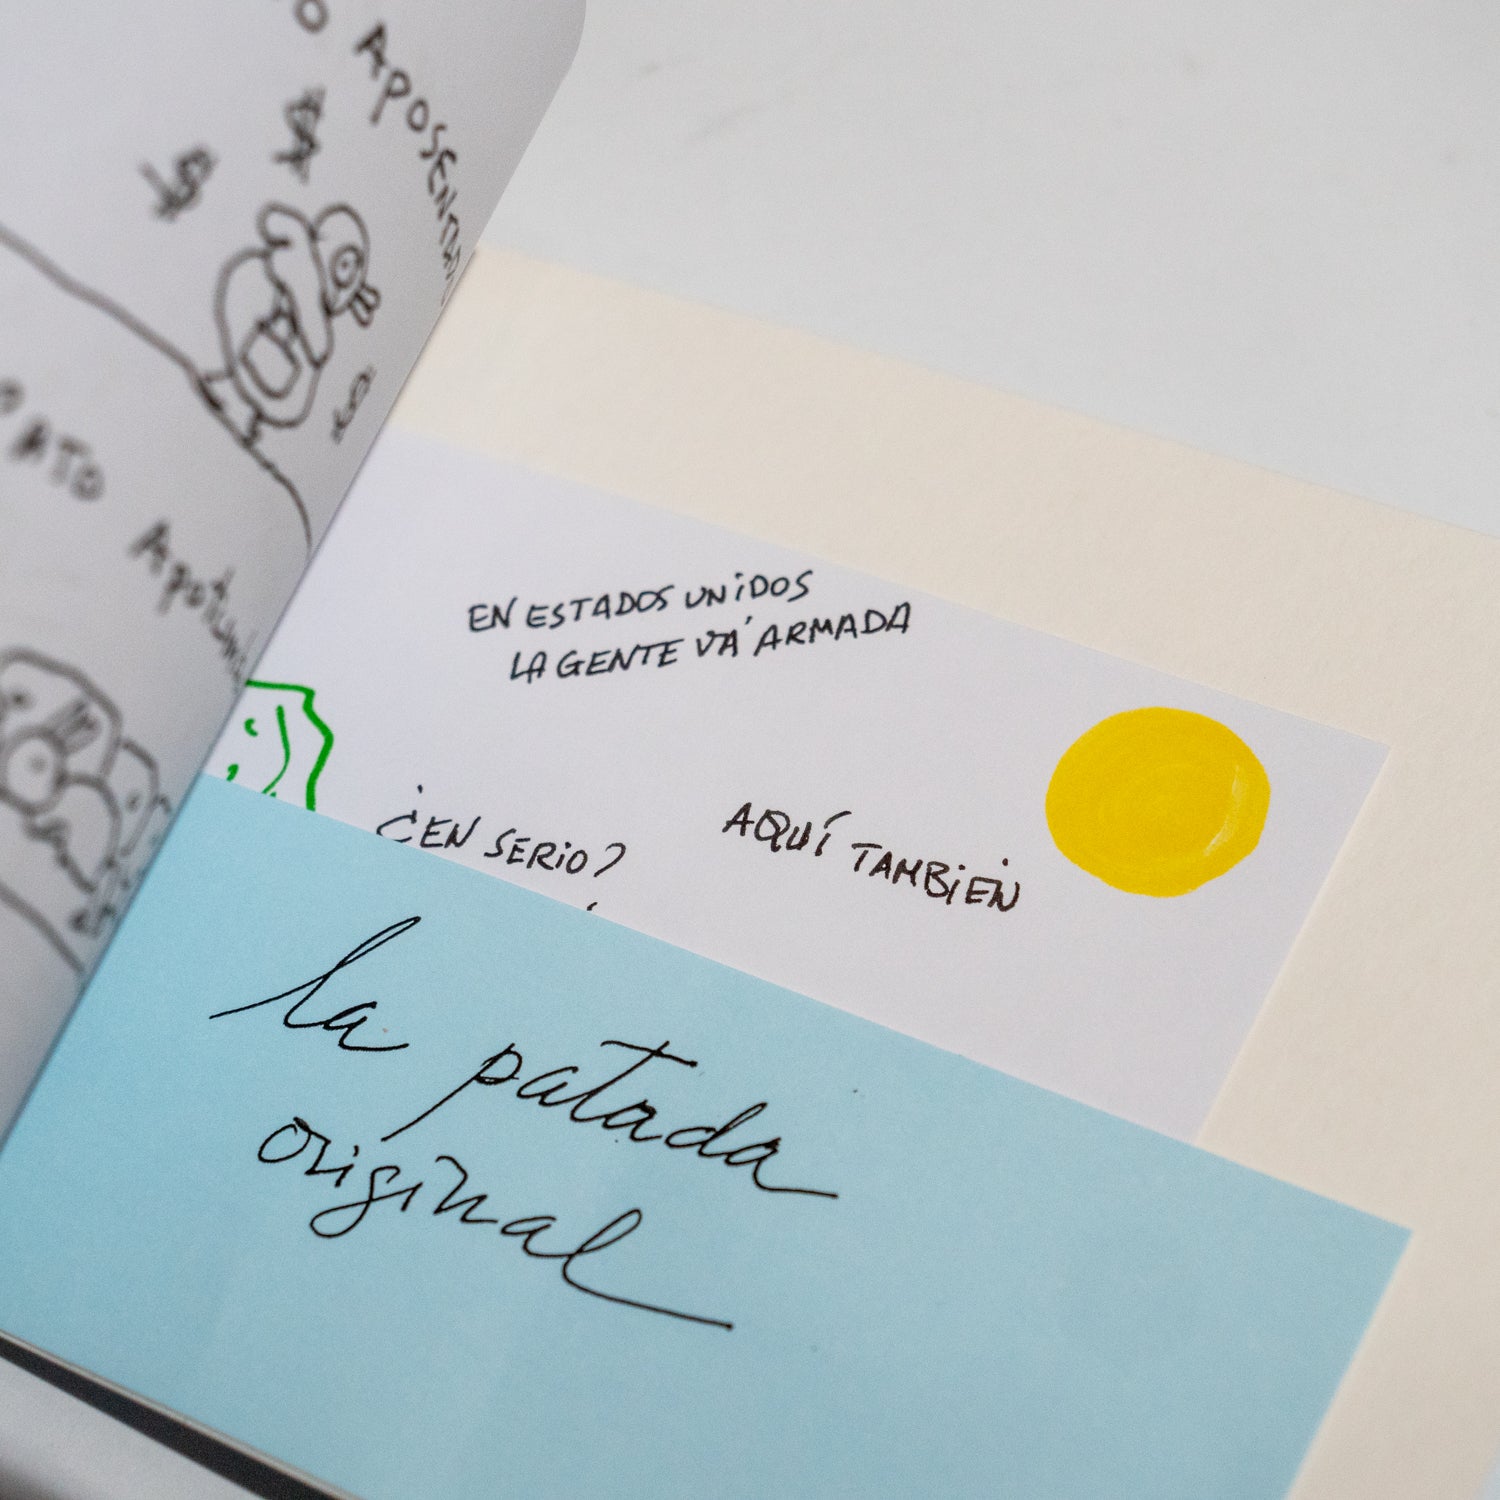 APOSENTADO
$
$
$
PATO
EN ESTADOS UNIDOS
LA GENTE VA ARMADA
¿EN SERIO?
AQUÍ
TAMBIEN
la patada
original